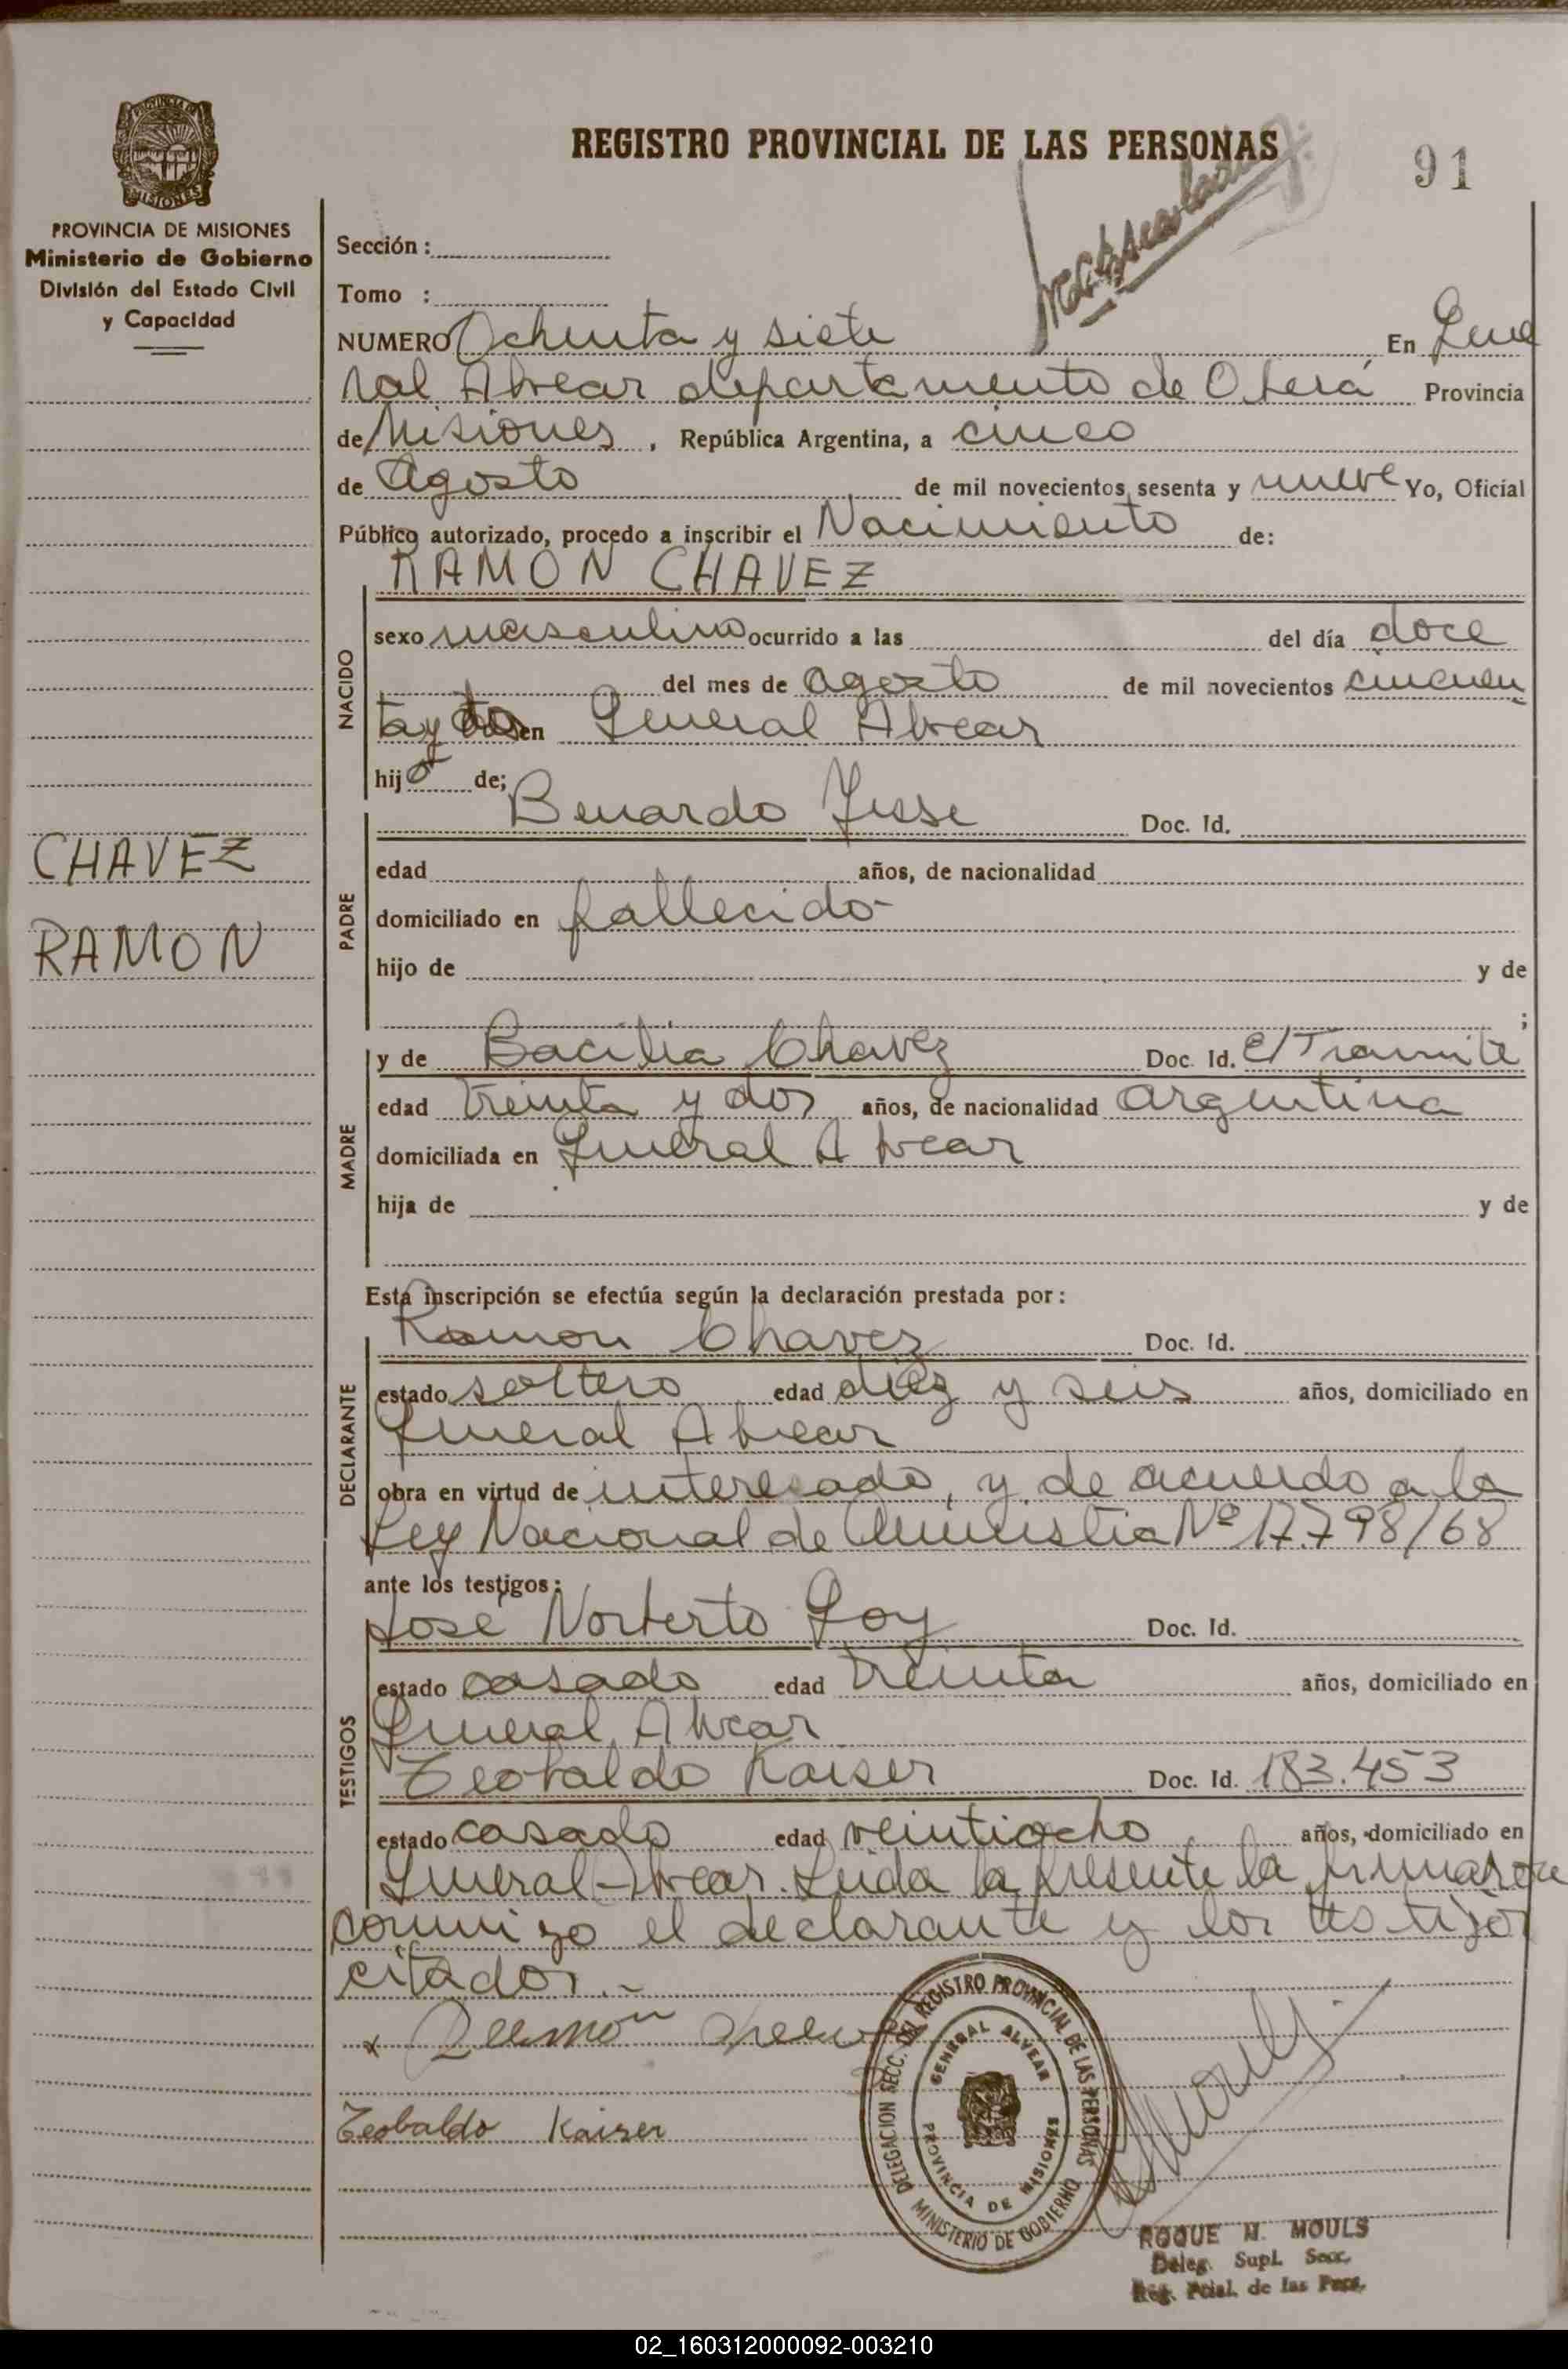 REGISTRO PROVINCIAL DE LAS PERSONAS
91
PROVINCIA DE MISIONES
Ministerio de Gobierno
División del Estado Civil
y Capacidad
Sección :
Tomo :
NUMERO Ochenta y siete En Gene
ral Alvear departamento de Oberá Provincia
de Misiones, República Argentina, a cinco
de Agosto de mil novecientos sesenta y nueve Yo, Oficial
Público autorizado, procedo a inscribir el Nacimiento de:
RAMON CHAVEZ
NACIDO
sexo masculino ocurrido a las del día doce
del mes de agosto de mil novecientos cincuen
ta y dos en General Alvear
hijo de;
CHAVEZ
RAMON
PADRE
Bernardo Doc. Id.
edad años, de nacionalidad
domiciliado en fallecido-
hijo de y de
;
MADRE
y de Bacilia Chavez Doc. Id. E/Tramite
edad treinta y dos años, de nacionalidad argentina
domiciliada en General Alvear
hija de y de
Esta inscripción se efectúa según la declaración prestada por :
DECLARANTE
Ramon Chavez Doc. Id.
estado soltero edad diez y seis años, domiciliado en
General Alvear
obra en virtud de interesado, y de acuerdo a la
Ley Nacional de Amnistia Nº 17.798/68
ante los testigos:
TESTIGOS
José Norberto Goy Doc. Id.
estado casado edad treinta años, domiciliado en
General Alvear
Teobaldo Kaiser Doc. Id. 183.453
estado casado edad veintiocho años, domiciliado en
General-Alvear. Leida la presente la firmaron
conmigo el declarante y los testigos
citados.-
x Ramon
Teobaldo Kaiser
DELEGACION SECC. DEL REGISTRO PROVINCIAL DE LAS PERSONAS
MINISTERIO DE GOBIERNO
GENERAL ALVEAR
PROVINCIA DE MISIONES
ROQUE M. MOULS
Deleg. Supl. Secc.
Reg. Pcial. de las Pers.
02_160312000092-003210